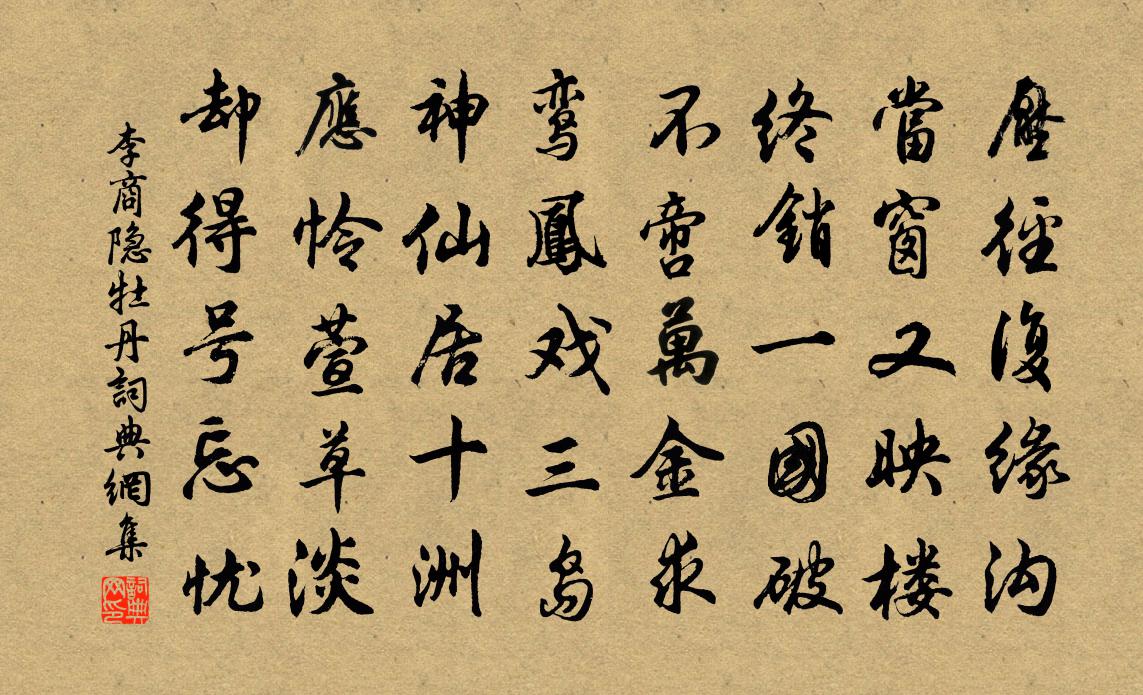 壓徑復緣沟
當窗又映楼
终銷一國破
不啻萬金求
鸾鳳戏三岛
神仙居十洲
應怜萱草淡
却得号忘忧
李商隐牡丹詞典網集
詞典网印